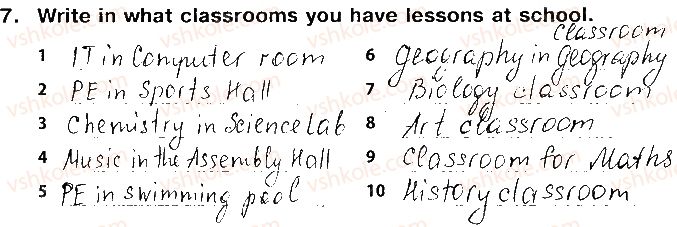 7. Write in what classrooms you have lessons at school.
1 IT in Computer room
2 PE in Sports Hall
3 Chemistry in Science lab
4 Music in the Assembly Hall
5 PE in swimming pool
6 Geography in Geography classroom
7 Biology classroom
8 Art classroom
9 Classroom for Maths
10 History classroom